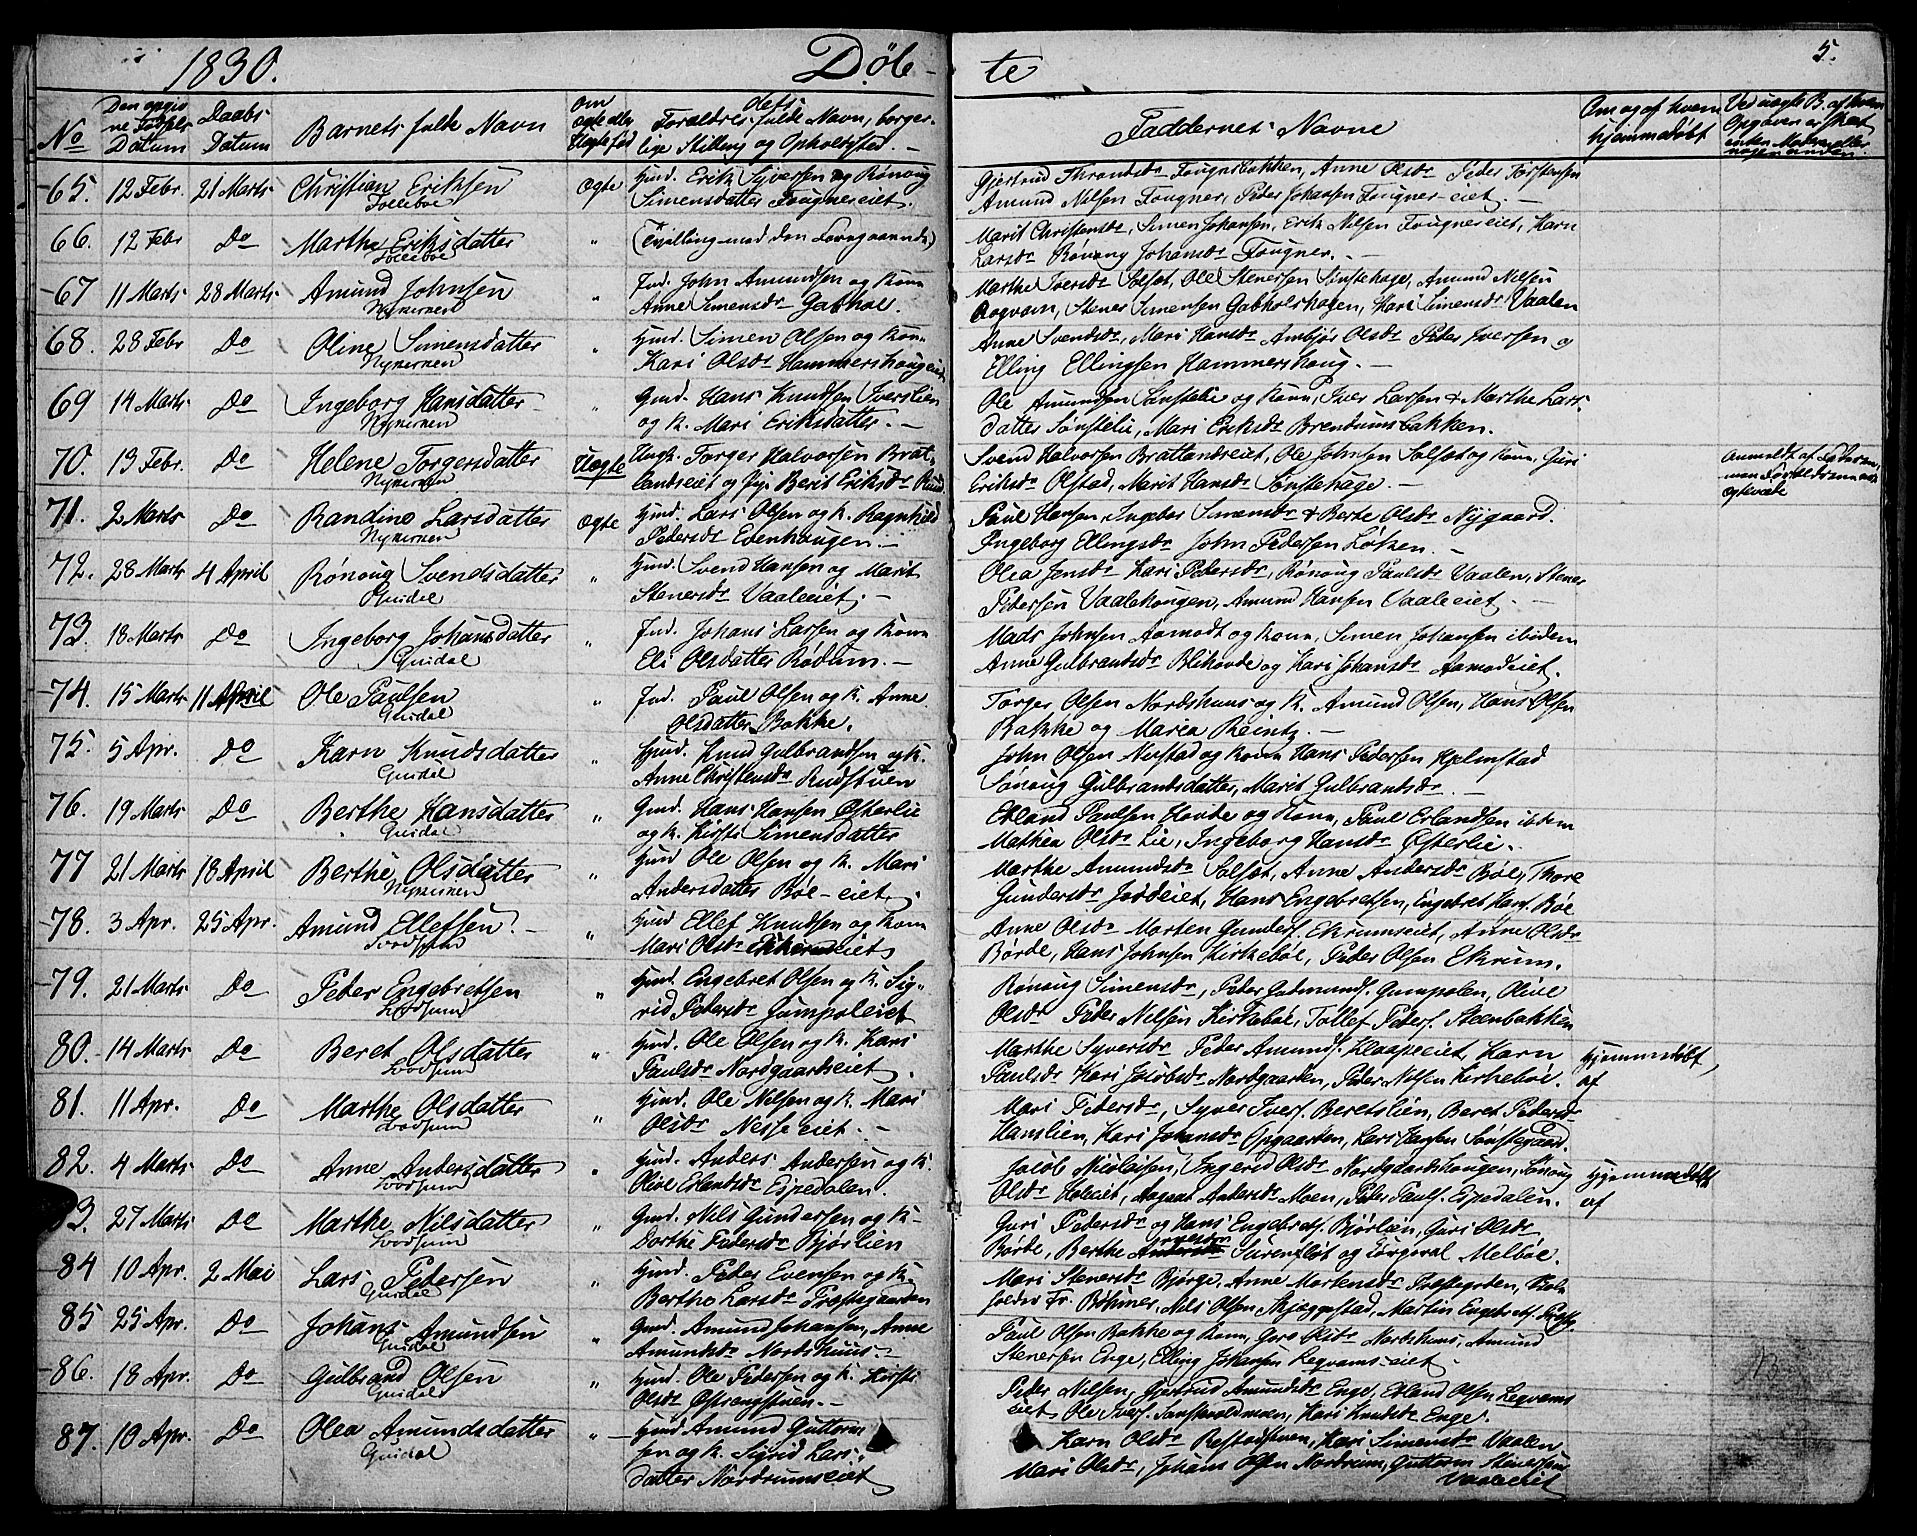 1830. Døb- te 5.
No Den opgivne Fødsels Datum Daabs Datum Barnets fulde Navn Om ægte eller Uægte fød Forældres fulde Navn, borgerlige Stilling og Opholdsted. Faddernes Navne Om og af hvem hjemmedøbt
65. 12 Febr. 21 Marts Christian Eriksen ægte Huusmd. Erik Syversen og Rønoug
Folleboe Simensdatter Fougnereiet.
Gjertrud Throndsdr Fougnsbakken, Anne Olsdr Peder Torstensen
Amund Nilsen Fougner, Peder Johansen Fougner eiet. -
66. 12 Febr Do Marthe Eriksdatter " (Tvilling med den Foregaaende)
Folleboe
Marit Christensdr, Simen Johansen, Erik Nilsen Fougnereiet, Karn
Larsdr Rønoug Johansdr Fougner. -
67 11 Marts 28 Marts Amund Johnsen " Ind. John Amundsen og Kone
Nykirken Anne Simensdr Gabhol.
Marthe Iversdr Solset, Ole Stenersen Sønstehage, Amund Nilsen
Rogvam, Stener Simensen Gabholshagen, Kari Simensdr Vaalen
68. 28 Febr Do Oline Simensdatter " Huusmd. Simen Olsen og Kone
Nykirken Kari Olsdr Hammershougeiet
Anne Svendsdr, Mari Hansdr Ambjør Olsdr Peder Iversen og
Elling Ellingsen Hammershoug. -
69 14 Marts Do Ingeborg Hansdatter " Gmd. Hans Knudsen Iverslien
Nykirken og K. Mari Eriksdatter. -
Ole Amundsen Sønstelie og Kone, Iver Larsen & Marthe Lars-
datter Sønstelie, Mari Eriksdr Brendumsbakken.
70. 13 Febr. Do Helene Torgersdatter Uægte Ungk. Torger Halvorsen Brat-
Nykirken landseiet og Pige Berit Eriksdr Rund
Svend Halvorsen Bratlandseiet, Ole Johnsen Solset og Kone, Guri
Eriksdr Olstad, Marit Hansdr Sønstehage. -
Anmeldt af Faderen,
71. 2 Marts Do Randine Larsdatter ægte Huusmd. Lars Olsen og K. Ragnhild
Nykirken Pedersdr Evenhougen. -
Paul Hansen, Ingebor Simensdr & Berte Olsdr Nygaard.
Ingeborg Ellingsdr John Pedersen Løken. -
72. 28 Marts 4 April Rønoug Svendsdatter " Huusmd. Svend Hansen og Marit
Gusdal Stenersdr Vaaleeiet. -
Olea Jensdr Kari Pedersdr, Rønoug Paulsdr Vaalen, Stener
Pedersen Vaalehougen, Amund Hansen Vaaleeiet. -
73. 18 Marts Do Ingeborg Johansdatter " Ind. Johans Larsen og Kone
Gusdal Eli Olsdatter Rødum. -
Mads Johnsen Aamodt og Kone, Simen Johansen ibidem
Anne Gulbrandsdr Blihovde og Kari Johansdr Aamodeiet.
74. 15 Marts 11 April Ole Paulsen " Ind. Paul Olsen og K. Anne
Gusdal Olsdatter Bakke.
Torger Olsen Nordshuus og K. Amund Olsen, Hans Olsen
Bakke og Maria Reintz. -
75. 5 Apr. Do Karn Knudsdatter " Huusmd. Knud Gulbrandsen og K.
Gusdal Anne Christensdr Rudstuen
John Olsen Nerstad og Kone Hans Pedersen Hjelmstad
Sønoug Gulbrandsdatter, Marit Gulbrandsdr. -
76. 19 Marts Do Berthe Hansdatter " Gmd. Hans Hansen Østerlie
Gusdal og K. Kirsti Simensdatter
Erland Paulsen Hovde og Kone, Paul Erlandsen ibidem
Mathea Olsdr Lie, Ingeborg Hansdr Østerlie. -
77 21 Marts 18 April Berthe Olsdatter " Huusmd Ole Olsen og K. Mari
Nykirken Andersdatter Bøe-eiet.
Marthe Amundsdr Solset, Anne Andersdr Bøe, Thore
Gundersdr Jordeiet, Hans Engebretsen, Engebret Hans. Bøe
78. 3 Apr. 25 Apr. Amund Ellefsen. - " Huusmd Ellef Knudsen og Kone
Svodsum Mari Olsdr Ekrumeiet
Anne Olsdr Morten Gunders. Ekrumseiet, Anne Olsdr
Børde, Hans Johnsen Kirkebøe, Peder Olsen Ekrum.
79. 21 Marts Do Peder Engebretsen " Huusmd. Engebret Olsen og K. Sig-
Svodsum rid Pedersdr Gumpoleiet
Rønoug Simensdr, Peder Gudmunds. Gumpolen, Olive
Olsdr Peder Nilsen Kirkebøe, Tollef Peders. Steenbakken
80. 14 Marts Do Beret Olsdatter " Huusmd. Ole Olsen og K. Kari
Svodsum Paulsdr Nordgaardseiet.
Marthe Syversdr Peder Amunds. Klaapeeiet, Karn
Paulsdr Kari Jacobsdr Nordgaarden, Peder Nilsen Kirkebøe.
Hjemmedøbt,
af
81. 11 Apr. Do Marthe Olsdatter " Huusmd. Ole Nilsen og K. Mari
Svodsum Olsdr Nesse eiet. -
Mari Pedersdr, Syver Ivers. Beretslien, Beret Pedersdr
Hanslien, Kari Johansdr Opgaarden, Lars Hansen Sønstegaard.
82. 4 Marts Do Anne Andersdatter " Huusmd. Anders Andersen og K.
Svodsum Olive Erlandsdr Espedalen.
Jacob Nicolaisen, Ingerid Olsdr Nordgaardshougen, Sønoug
Olsdr Holeiet, Aagaat Andersdr Moen, Peder Pauls. Espedalen.
Hjemmedøbt
af
83. 27 Marts Do Marthe Nilsdatter " Gmd. Nils Gundersen og K-
Svodsum Dorthe Pedersdr Bjørlien
Guri Pedersdr og Hans Engebrets. Bjørlien, Guri Olsdr
Børde, Berthe Iversdr Surenfløt og Torgeral Melbøe.
84 10 Apr. 2 Mai Lars Pedersen " Huusmd. Peder Evensen og K.
Gusdal Berthe Larsdr Prestegaarden
Mari Stenersdr Bjørge, Anne Mortensdr Prestegrden, Skole-
holder Fr. Bøhmer, Nils Olsen Skjæggestad, Martin Engebrets. Prestg.
85 25 Apr. Do Johans Amundsen " Gmd. Amund Johansen, Anne
Gusdal Amundsdr Nordshuus. -
Paul Olsen Bakke og Kone, Goro Olsdr Nordshuus, Amund
Stenersen Enge, Elling Johansen Legvamseiet.
86. 18 Apr. Do Gulbrand Olsen " Huusmd. Ole Pedersen og K. Kirsti
Gusdal Olsdr Østrengstuen. -
Peder Nilsen, Gjertrud Amundsdr Enge, Erland Olsen Legvams
eiet, Ole Ivers. Sønstevoldmoen, Kari Knudsdr Enge.
87. 10 Apr. Do Olea Amundsdatter " Huusmd Amund Guttorm-
Gusdal sen og K. Sigrid Lars-
datter Nordrumseiet
Karn Olsdr Refstadstuen, Kari Simensdr Vaalen
Mari Olsdr, Johans Olsen Nordrum, Guttorm Stenersen
Vaaleeiet